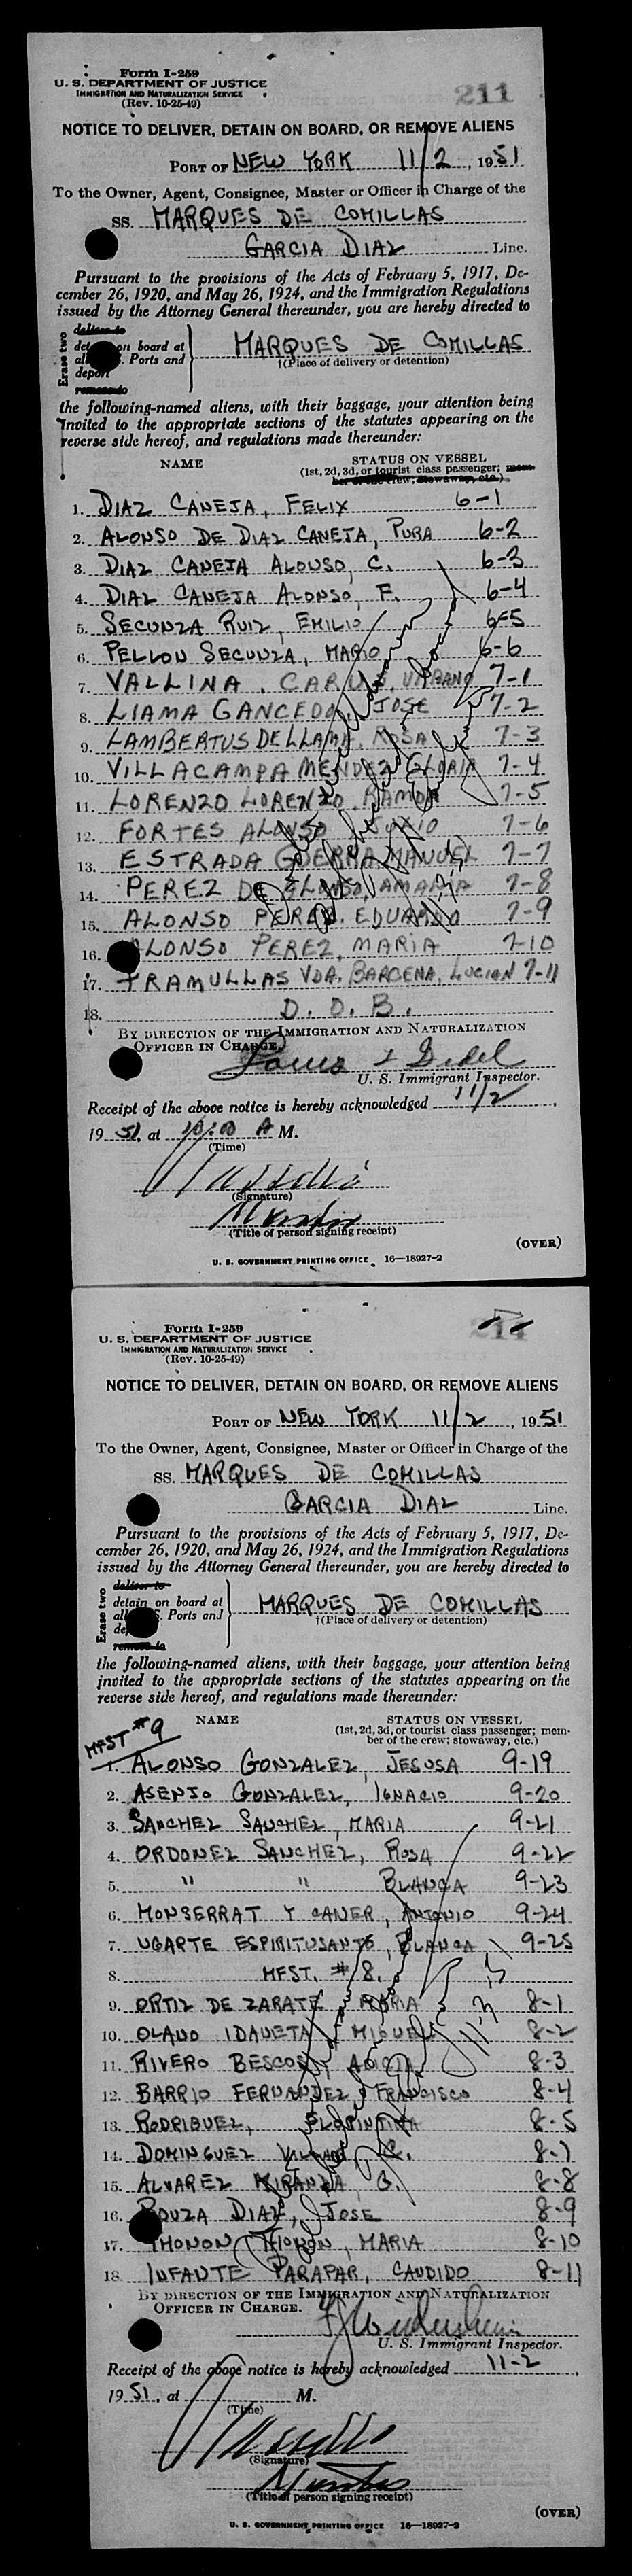 Form I-259
U. S. DEPARTMENT OF JUSTICE
IMMIGRATION AND NATURALIZATION SERVICE
(Rev. 10-25-49)
211
NOTICE TO DELIVER, DETAIN ON BOARD, OR REMOVE ALIENS
PORT OF NEW YORK 11/2, 1951
To the Owner, Agent, Consignee, Master or Officer in Charge of the
SS. MARQUES DE COMILLAS
GARCIA DIAZ Line.
Pursuant to the provisions of the Acts of February 5, 1917, De-
cember 26, 1920, and May 26, 1924, and the Immigration Regulations
issued by the Attorney General thereunder, you are hereby directed to
Erase two
deliver to
on board at
Ports and
deport
remove to
MARQUES DE COMILLAS
†(Place of delivery or detention)
the following-named aliens, with their baggage, your attention being
invited to the appropriate sections of the statutes appearing on the
reverse side hereof, and regulations made thereunder:
NAME
STATUS ON VESSEL
(1st, 2d, 3d, or tourist class passenger; mem-
ber of the crew; stowaway, etc.)
1. DIAZ CANEJA, FELIX 6-1
2. ALONSO DE DIAZ CANEJA, PURA 6-2
3. DIAZ CANEJA ALONSO, C. 6-3
4. DIAZ CANEJA ALONSO, F. 6-4
5. SECUNZA RUIZ, EMILIO 6-5
6. PELLON SECUNZA, MARIO 6-6
7. VALLINA, CARUS, URBANO 7-1
8. LIAMA GANCEDO, JOSE 7-2
9. LAMBERTUS DE LLAMA, ROSA 7-3
10. VILLACAMPA MENDEZ, GLORIA 7-4
11. LORENZO LORENZO, RAMON 7-5
12. FORTES ALONSO 7-6
13. ESTRADA GUERRA MANUEL 7-7
14. PEREZ DE ALONSO, AMALIA 7-8
15. ALONSO PEREZ, EDUARDO 7-9
16. ALONSO PEREZ, MARIA 7-10
17. TRAMULLAS VDA. BARCENA, LUCIAN 7-11
18. D. O. B.
BY DIRECTION OF THE IMMIGRATION AND NATURALIZATION
OFFICER IN CHARGE.
U. S. Immigrant Inspector.
Receipt of the above notice is hereby acknowledged 11/2,
1951, at 10:00 A M.
(Time)
(Signature)
(Title of person signing receipt)
(OVER)
U. S. GOVERNMENT PRINTING OFFICE 16—18927-2
Form I-259
U. S. DEPARTMENT OF JUSTICE
IMMIGRATION AND NATURALIZATION SERVICE
(Rev. 10-25-49)
NOTICE TO DELIVER, DETAIN ON BOARD, OR REMOVE ALIENS
PORT OF NEW YORK 11/2, 1951
To the Owner, Agent, Consignee, Master or Officer in Charge of the
SS. MARQUES DE COMILLAS
GARCIA DIAZ Line.
Pursuant to the provisions of the Acts of February 5, 1917, De-
cember 26, 1920, and May 26, 1924, and the Immigration Regulations
issued by the Attorney General thereunder, you are hereby directed to
Erase two
deliver to
detain on board at
Ports and
remove to
MARQUES DE COMILLAS
†(Place of delivery or detention)
the following-named aliens, with their baggage, your attention being
invited to the appropriate sections of the statutes appearing on the
reverse side hereof, and regulations made thereunder:
MFST #9
NAME
STATUS ON VESSEL
(1st, 2d, 3d, or tourist class passenger; mem-
ber of the crew; stowaway, etc.)
1. ALONSO GONZALEZ, JESUSA 9-19
2. ASENJO GONZALEZ, IGNACIO 9-20
3. SANCHEZ SANCHEZ, MARIA 9-21
4. ORDONEZ SANCHEZ, ROSA 9-22
5. " " BLANCA 9-23
6. MONSERRAT Y CANER, ANTONIO 9-24
7. UGARTE ESPIRITUSANTO, BLANCA 9-25
8. MFST. #8.
9. ORTIZ DE ZARATE, MARIA 8-1
10. OLANO IDAUETA, MIGUEL 8-2
11. RIVERO BESCOS, 8-3
12. BARRIO FERNANDEZ, FRANCISCO 8-4
13. RODRIGUEZ, FLORINTINA 8-5
14. DOMINGUEZ 8-7
15. ALVAREZ MIRANDA, G. 8-8
16. BOUZA DIAZ, JOSE 8-9
17. THONON THONON, MARIA 8-10
18. INFANTE PARAPAR, CANDIDO 8-11
BY DIRECTION OF THE IMMIGRATION AND NATURALIZATION
OFFICER IN CHARGE.
U. S. Immigrant Inspector.
Receipt of the above notice is hereby acknowledged 11-2,
1951, at M.
(Time)
(Signature)
(Title of person signing receipt)
(OVER)
U. S. GOVERNMENT PRINTING OFFICE 16—18927-2